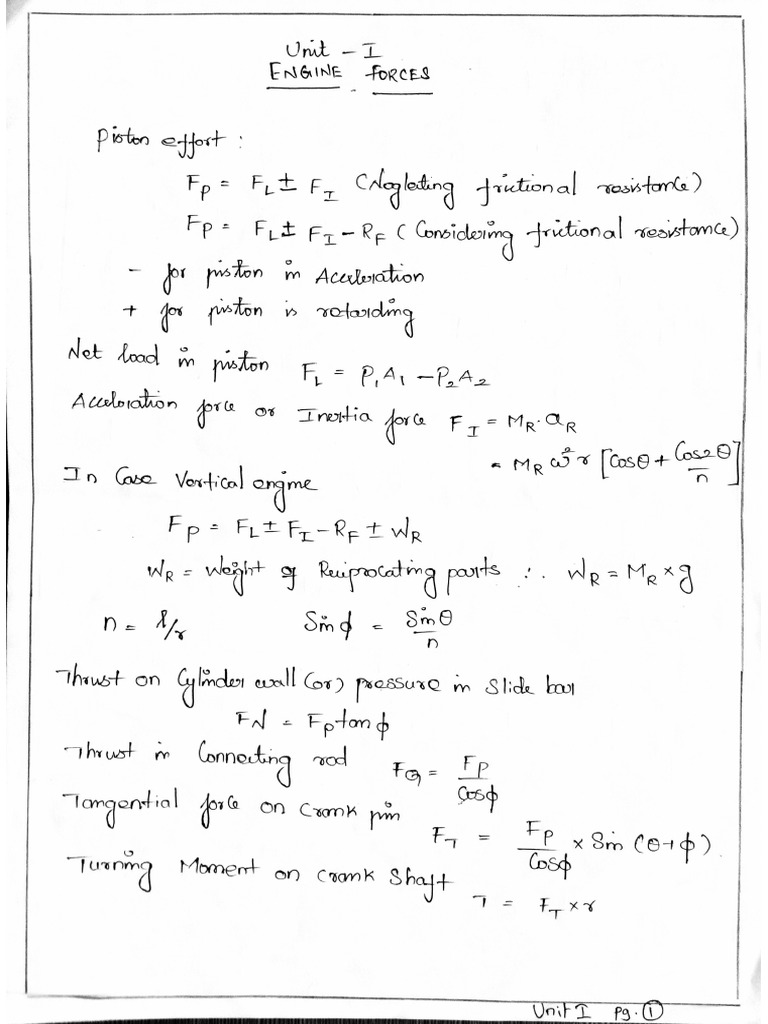 Unit - I
ENGINE FORCES
Piston effort :
F_P = F_L ± F_I (Neglecting frictional resistance)
F_P = F_L ± F_I - R_F (Considering frictional resistance)
- for piston in Acceleration
+ for piston is retarding
Net load in piston F_L = P_1 A_1 - P_2 A_2
Acceleration force or Inertia force F_I = M_R . a_R
= M_R ω² r [Cosθ + Cos2θ/n]
In Case Vertical engine
F_P = F_L ± F_I - R_F ± W_R
W_R = Weight of Reciprocating parts ∴ W_R = M_R × g
n = l/r Sin φ = Sinθ/n
Thrust on Cylinder wall (or) pressure in slide bar
F_N = F_P tan φ
Thrust in Connecting rod F_Q = F_P/Cosφ
Tangential force on Crank pin F_T = F_P/Cosφ × Sin (θ+φ)
Turning Moment on Crank Shaft
T = F_T × r
Unit I Pg. ①